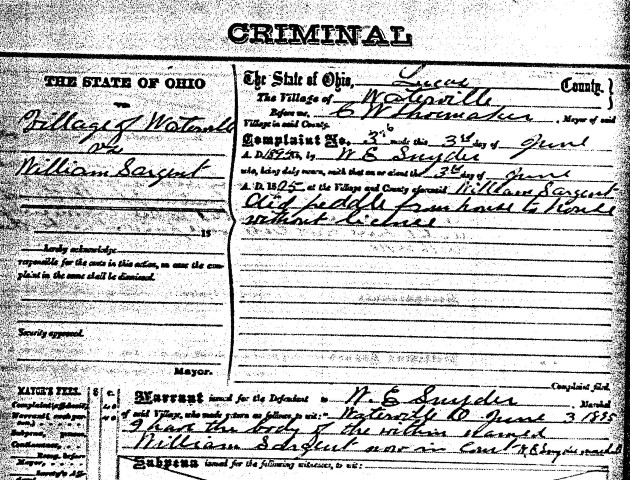 CRIMINAL
THE STATE OF OHIO
vs
Village of Waterville
vs
William Sargent
18
hereby acknowledge
responsible for the costs in this action, in case the com-
plaint in the same shall be dismissed.
Security approved.
Mayor.
The State of Ohio, Lucas County. }
The Village of Waterville
Before me, C W Shoemaker, Mayor of said
Village in said County.
Complaint No. 36 made this 3rd day of June
A. D. 1895, by W E Snyder
who, being duly sworn, saith that on or about the 3rd day of June
A. D. 1895, at the Village and County aforesaid William Sargent
did peddle from house to house
without license
Complaint filed.
MAYOR'S FEES. $ C.
Warrant issued for the Defendant to W. E. Snyder Marshal
of said Village, who made return as follows, to wit: Waterville O June 3 1895
I have the body of the within named
William Sargent now in Court W E Snyder marshal
Subpena issued for the following witnesses, to wit: